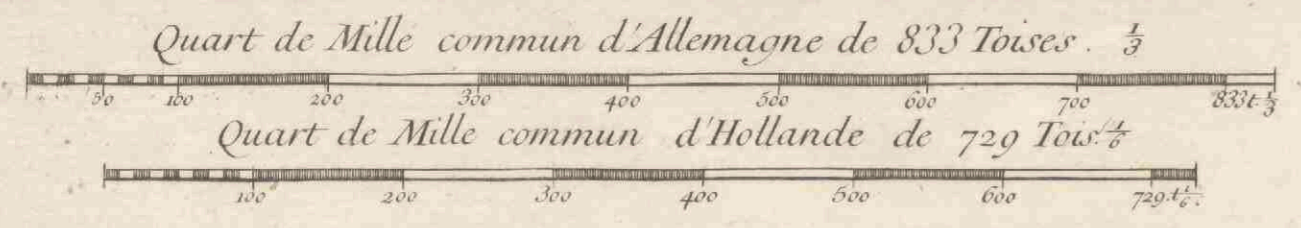 Quart de Mille commun d'Allemagne de 833 Toises. 1/3
50 100 200 300 400 500 600 700 833t. 1/3
Quart de Mille commun d'Hollande de 729 Tois. 1/6
100 200 300 400 500 600 729.t 1/6.